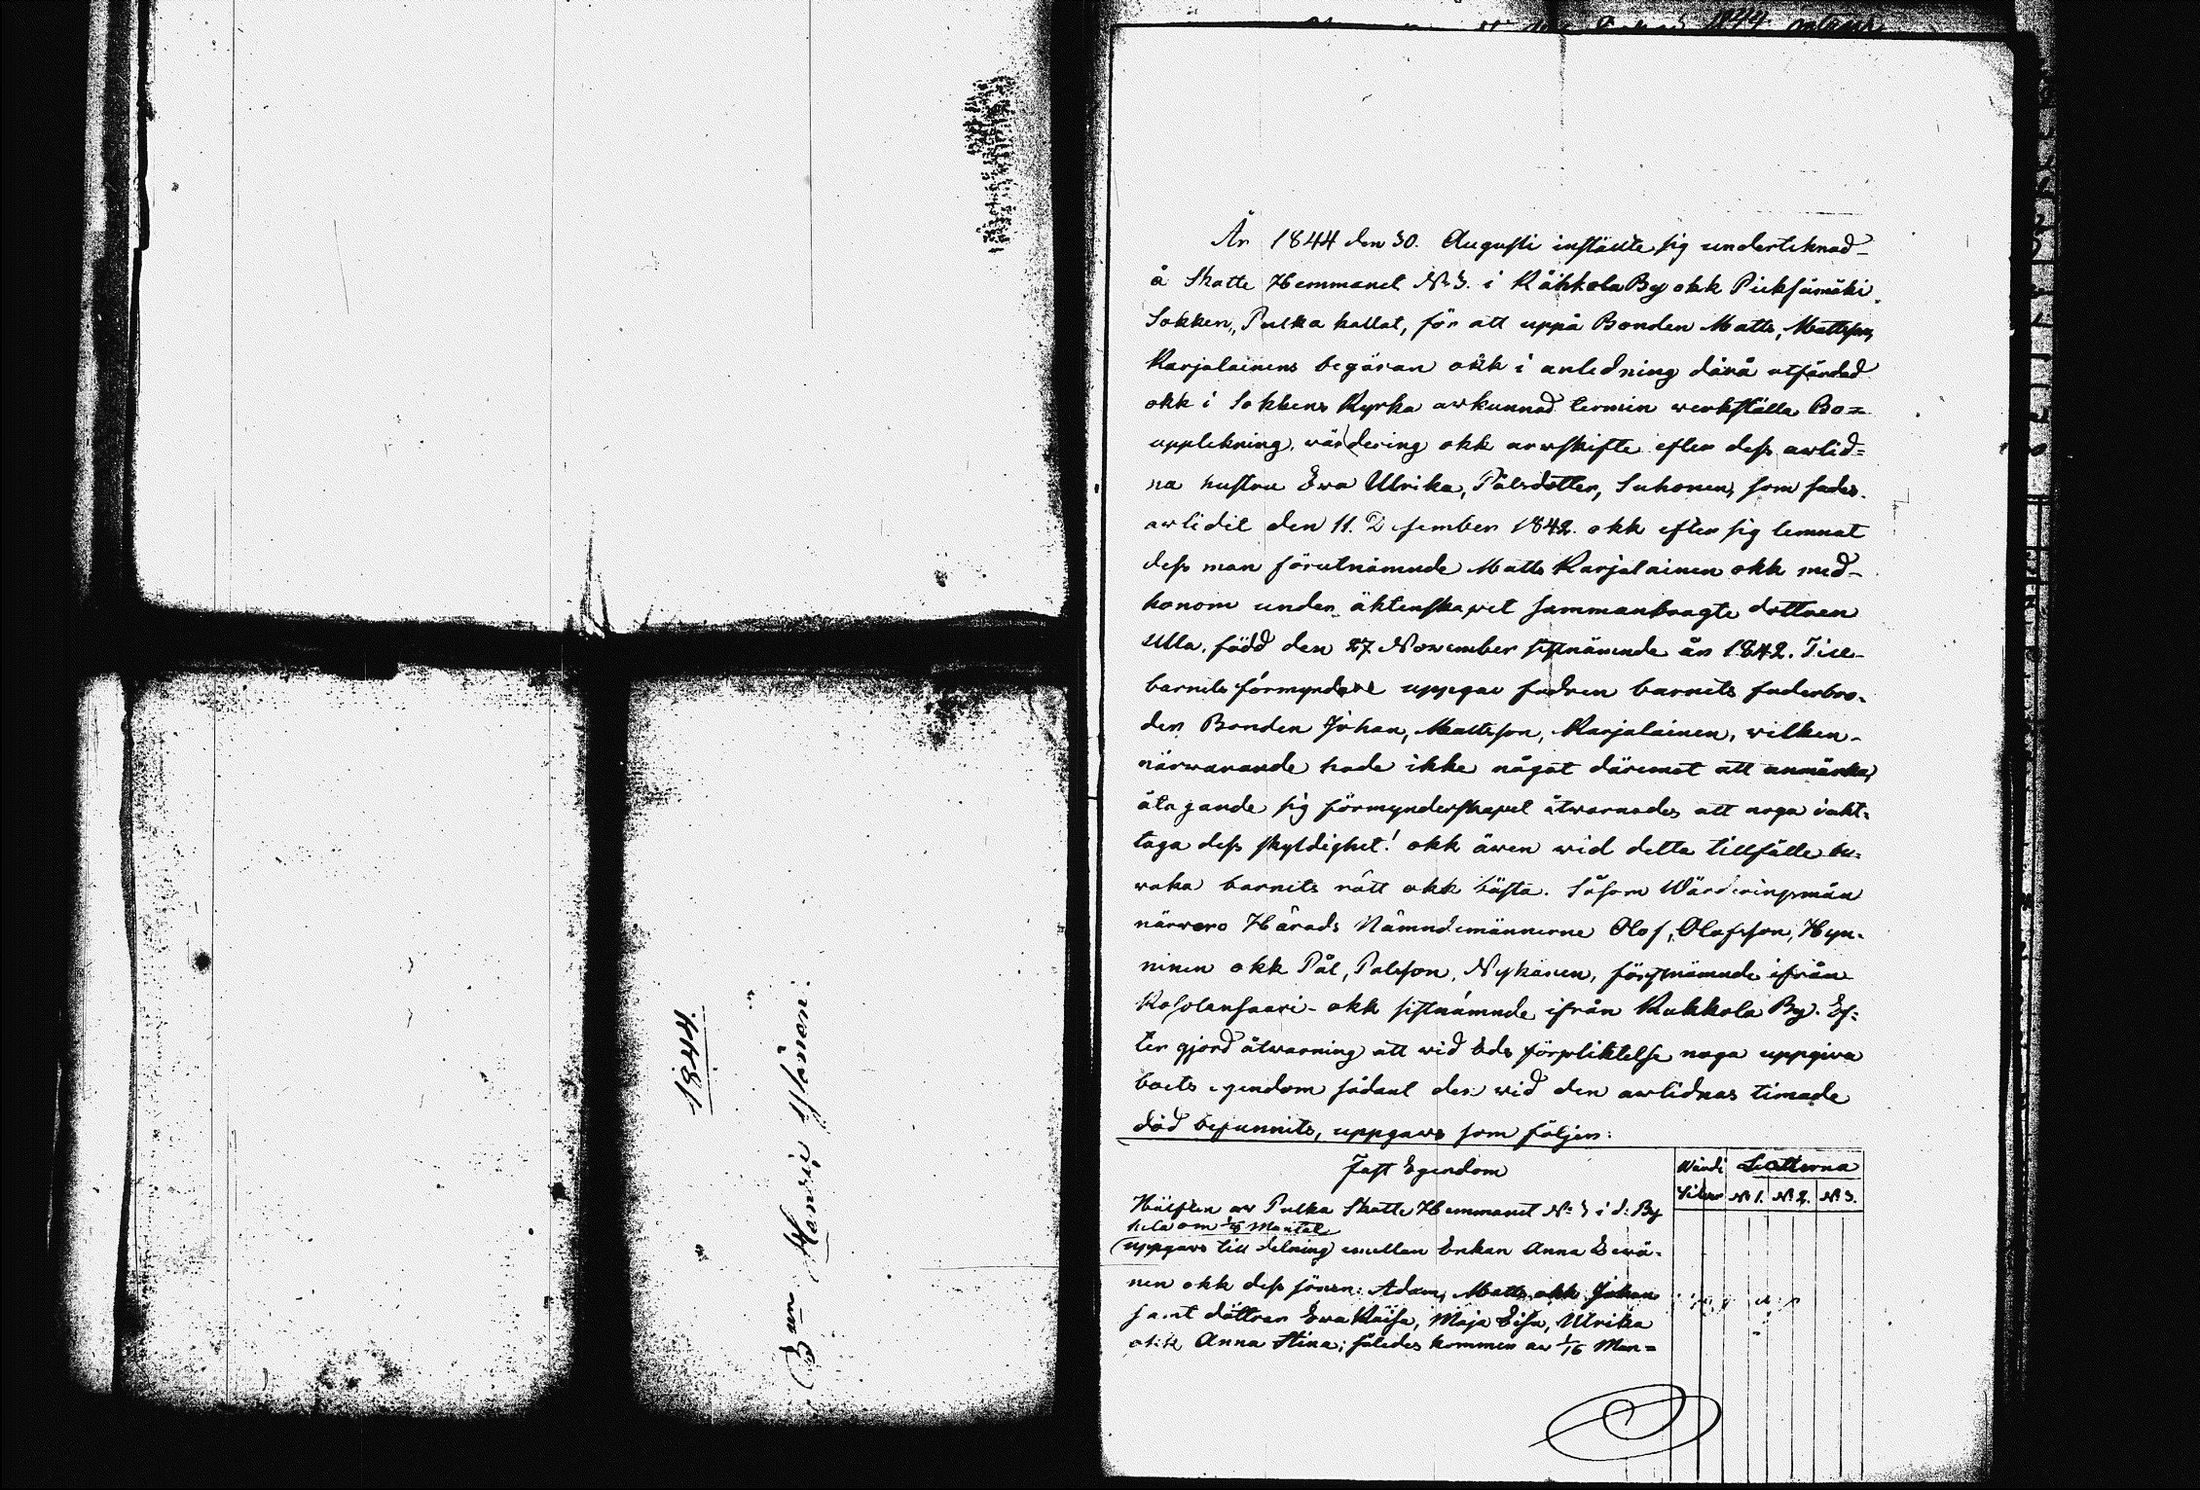 1844.
År 1844 den 30. Augusti instälte sig underteknad
å Skatte Hemmanet N:o 3. i Kåhkola By okk Pieksämäki
Sokken, Pulka kallat, för att uppå Bonden Matts, Mattsson,
Karjalainens begäran okk i anledning därå utfärdad
okk i Sokkens Kyrka avkunnad termin verkställa Bo=
upptekning, värdering okk arvskifte efter dess avlid=
na hustru Eva Ulrika, Pålsdotter, Suhonen, som
avlidit den 11. Desember 1842. okk efter sig lemnat
dess man förutnämnde Matts Karjalainen okk med
honom under äktenskapet sammanbragte dottren
Ulla, född den 27. November sistnämnde år 1842. Till
barnets förmyndare uppgav fadren barnets faderbro-
der Bonden Johan, Mattsson, Karjalainen, vilken
närvarande hade ikke något däremot att anmärka,
åtagande sig förmynderskapet åtvarnades att noga iakt-
taga dess skyldighet! okk även vid detta tillfälle be-
vaka barnets rätt okk bästa. Såsom Värderingsmän
närvoro Härads Nämndemännerne Olof, Olofsson, Hyn-
ninen okk Pål, Palsson, Nykänen, förstnämnde ifrån
Kosolansaari okk sistnämnde ifrån Kukkola By. Ef-
ter gjord åtvarning att vid Eds förpliktelse noga uppgiva
boets egendom sådant den vid den avlidnas timade
död befunnits, uppgavs som följer:
Fast Egendom
Värdi Lotterna
Silver N:o 1. N:o 2. N:o 3.
Hälften av Pulka Skatte Hemmanet N:o 3 i d:o By
hela om Mantal
uppgavs till delning emellan Enkan Anna
nen okk dess söner: Adam, Matts okk Johan
samt döttrar Eva Kaisa, Maja Lisa, Ulrika
okk Anna Stina; således kommer av 1/16 Man=